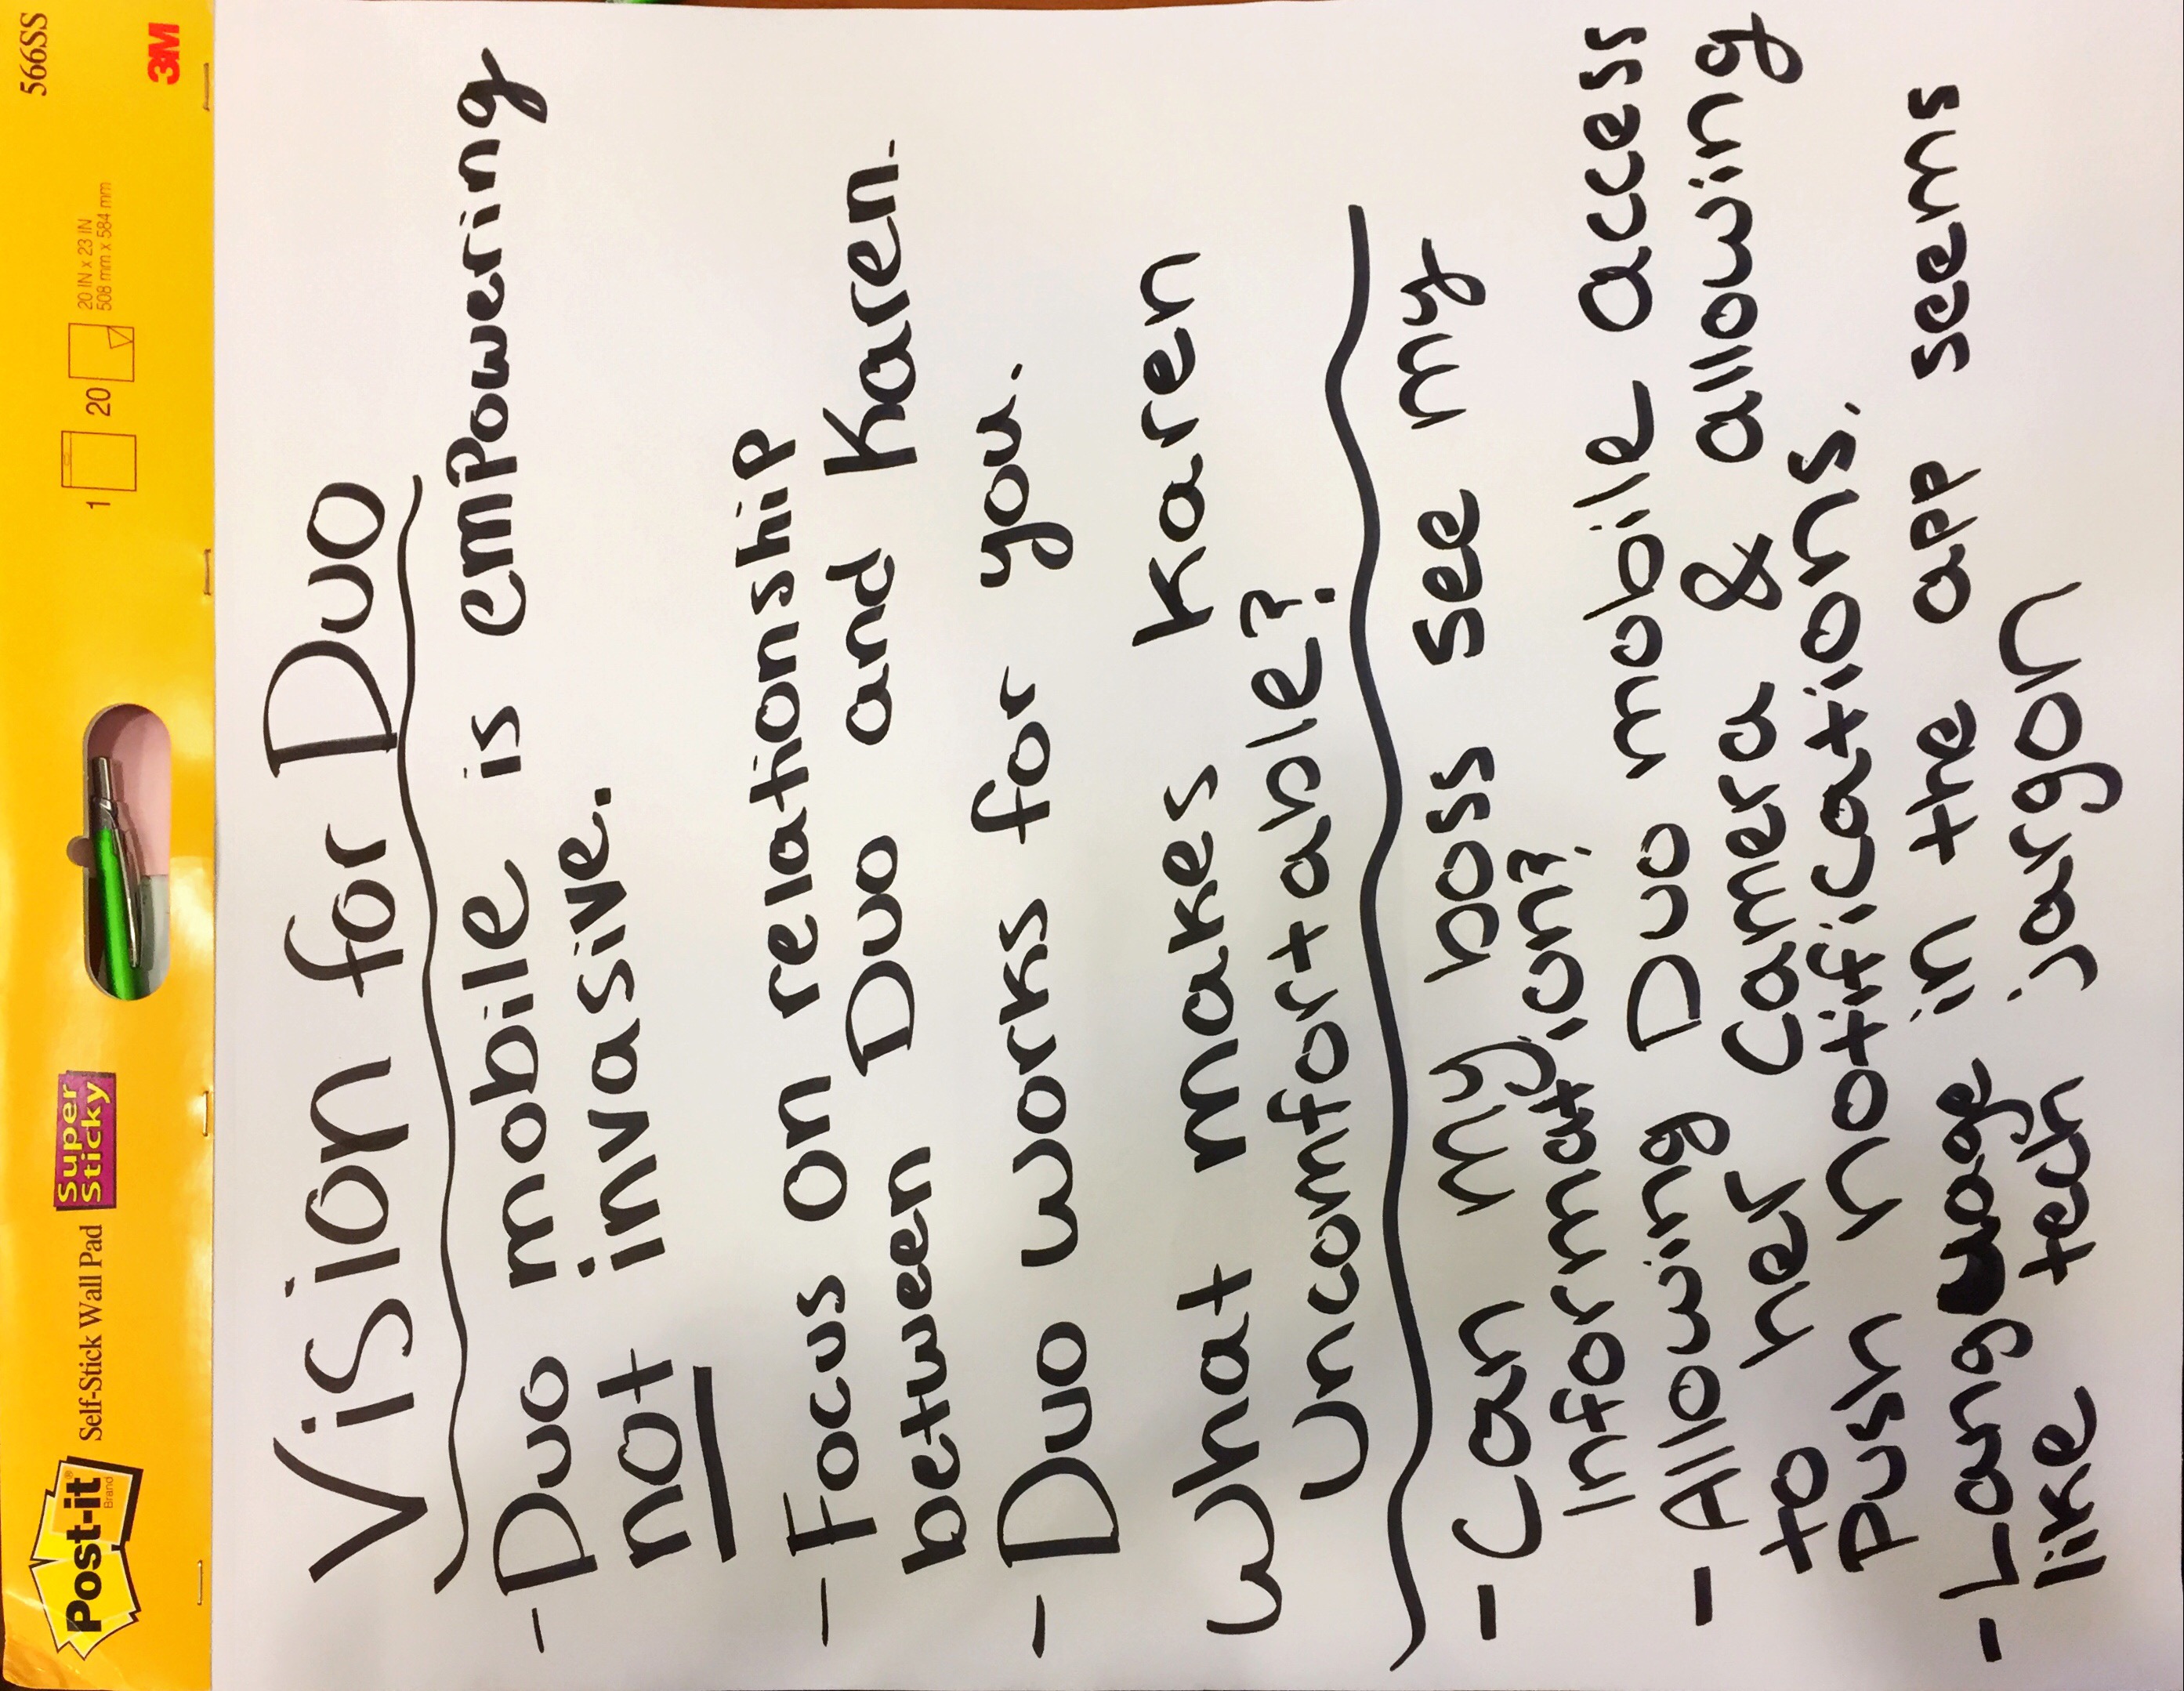 Post-it® Brand Self-Stick Wall Pad Super Sticky 1 20 20 IN x 23 IN 508 mm x 584 mm 566SS 3M
Vision for Duo
- Duo mobile is emPowering
not invasive.
- Focus on relationship
between Duo and Karen.
- Duo works for you.
What makes Karen
Uncomfortable?
- Can my boss see my
information?
- Allowing Duo mobile access
to her camera & allowing
Push notifications.
- Language in the app seems
like tech jargon